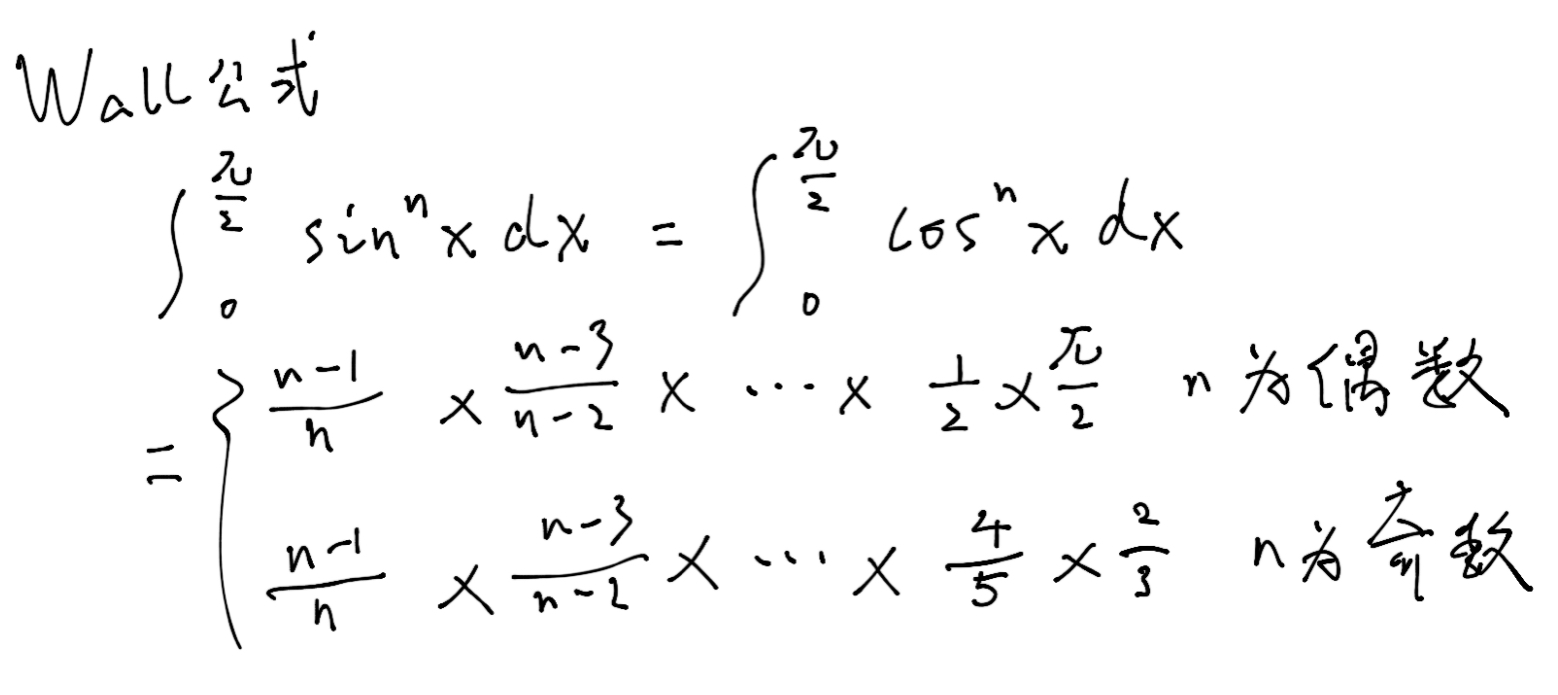 Wall公式
∫_0^{π/2} sin^n x dx = ∫_0^{π/2} cos^n x dx
= { (n-1)/n × (n-3)/(n-2) × ⋯ × 1/2 × π/2 n为偶数
(n-1)/n × (n-3)/(n-2) × ⋯ × 4/5 × 2/3 n为奇数